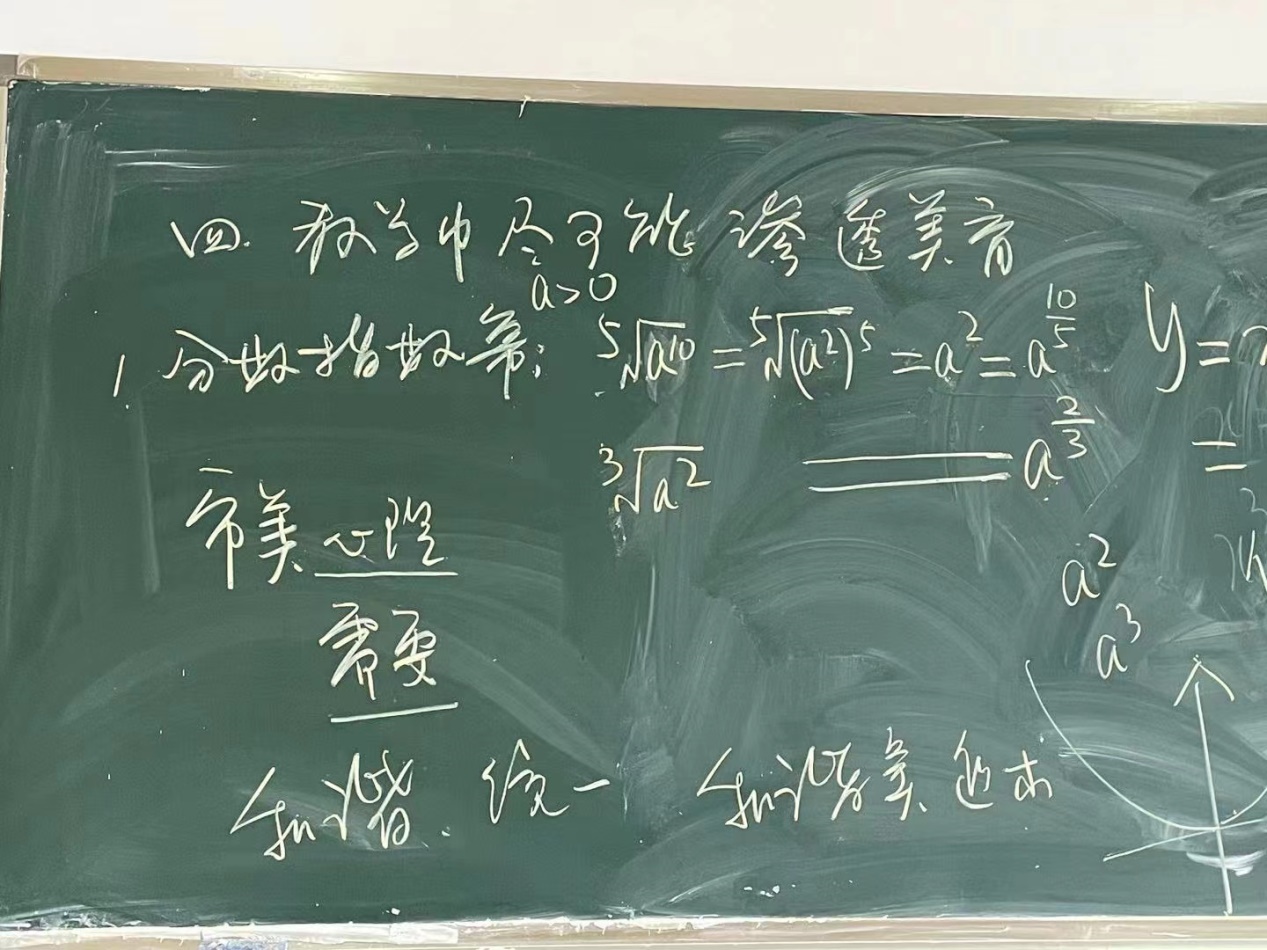 四. 教学中尽可能渗透美育
a>0
1. 分数指数幂: ⁵√a¹⁰ = ⁵√(a²)⁵ = a² = a^(10/5) y =
³√a² = a^(2/3) =
审美心理
a²
需要
a³
和谐. 统一 和谐美 追求